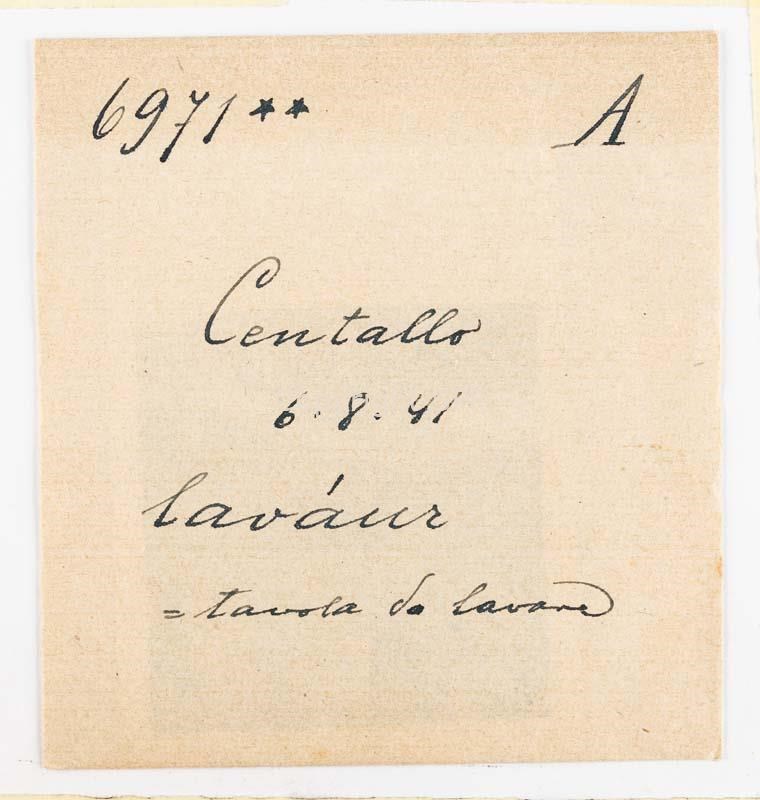 6971** A
Centallo
6.8.41
laváur
= tavola da lavare